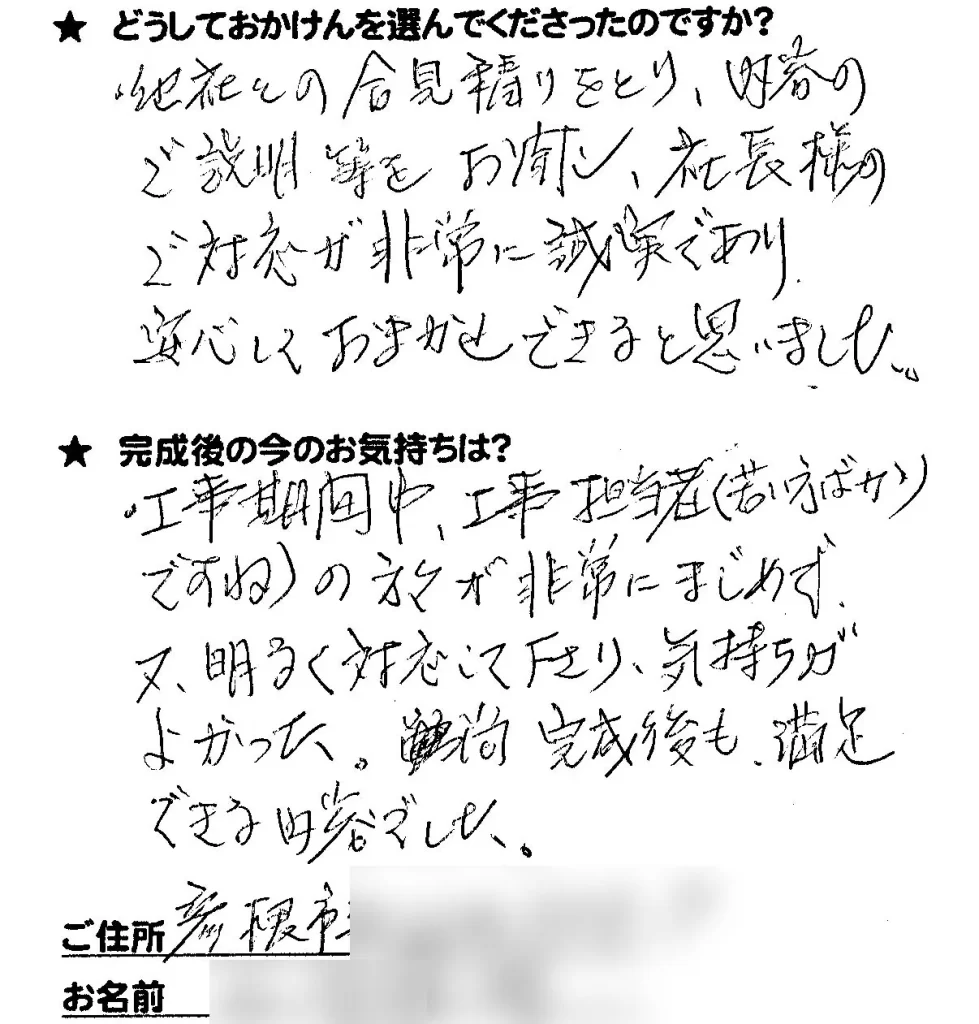 ★ どうしておかけんを選んでくださったのですか?
・他社との合見積りをとり、内容の
ご説明等をお聞きし、社長様の
ご対応が非常に誠実であり
安心しておまかせできると思いました。
★ 完成後の今のお気持ちは?
・工事期間中、工事担当者(若い方ばかり
ですね)の方々が非常にまじめで、
又、明るく対応して下さり、気持ちが
よかった。尚 完成後も、満足
できる内容でした。
ご住所 彦根市
お名前